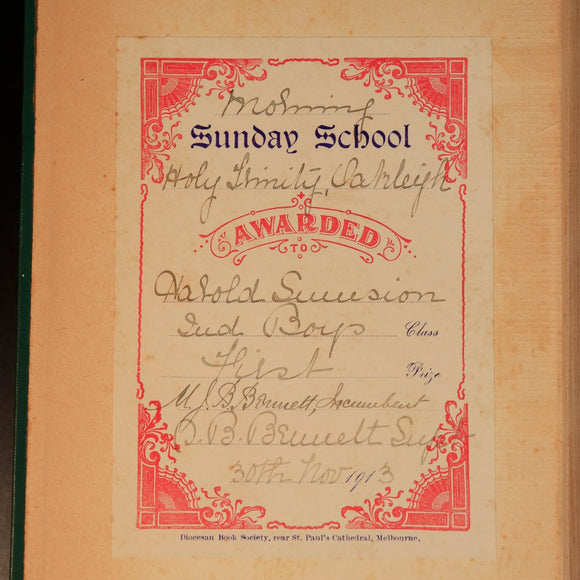 Morning
Sunday School
Holy Trinity, Oakleigh
AWARDED
TO
Harold
2nd Boys Class
First Prize
M. J. B. Bennett, Incumbent
B. Bennett Sup
30th Nov 1913
Diocesan Book Society, rear St. Paul's Cathedral, Melbourne.